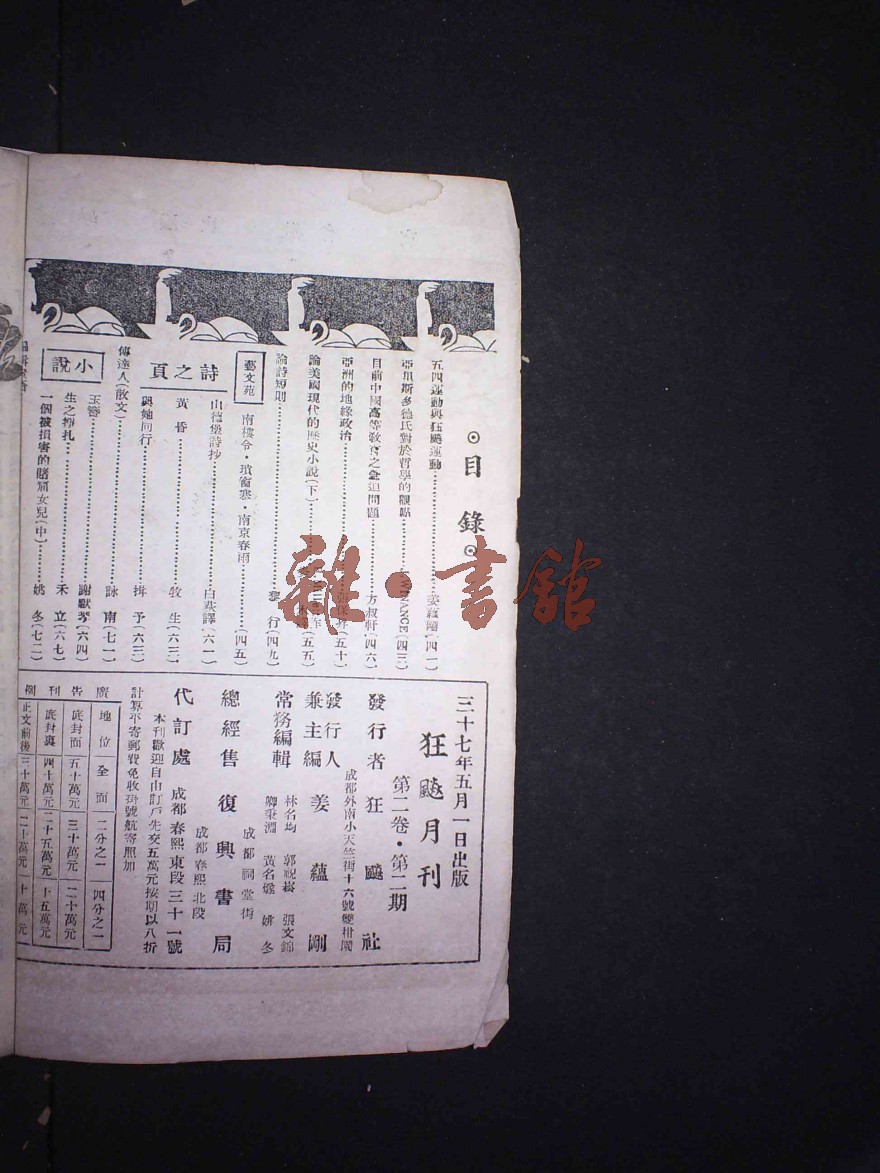 目錄
五四運動與狂飈運動⋯⋯姜蘊剛(四一)
亞里斯多德氏對於哲學的觀點⋯⋯WINANCE(四三)
目前中國高等教育之急迫問題⋯⋯方叔軒(四六)
亞洲的地緣政治⋯⋯(五十)
論美國現代的歷史小說(下)⋯⋯(五五)
論詩短則⋯⋯黎 行(四九)
藝文苑
南樓令・瑣窗寒・南京春雨⋯⋯(四五)
詩之頁
山德堡詩抄⋯⋯白荻譯(六一)
黃昏⋯⋯牧 生(六三)
與她同行⋯⋯揖 予(六三)
傅達人(散文)⋯⋯詠 南(七一)
小說
玉簪⋯⋯謝獻琴(六四)
生之掙扎⋯⋯禾 立(六七)
一個被損害的賭窟女兒(中)⋯⋯姚 冬(七二)
三十七年五月一日出版
狂飈月刊
第二卷・第二期
發行者 狂飈社
成都外南小天竺街十六號雙柑閣
發行人兼主編 姜蘊剛
常務編輯 林名均 郭祝崧 張文錦
卿秉淵 黃名 姚冬
總經售 復興書局
成都祠堂街
成都春熙北段
代訂處 成都春熙東段三十一號
本刊歡迎自由訂戶先交五萬元按期以八折
計算平寄郵費免收掛號航寄照加
廣告刊例
地位 全面 二分之一 四分之一
底封面 五十萬元 三十萬元 二十萬元
底封裏 四十萬元 二十五萬元 十五萬元
正文前後 三十萬元 二十萬元 十萬元
雜・書館